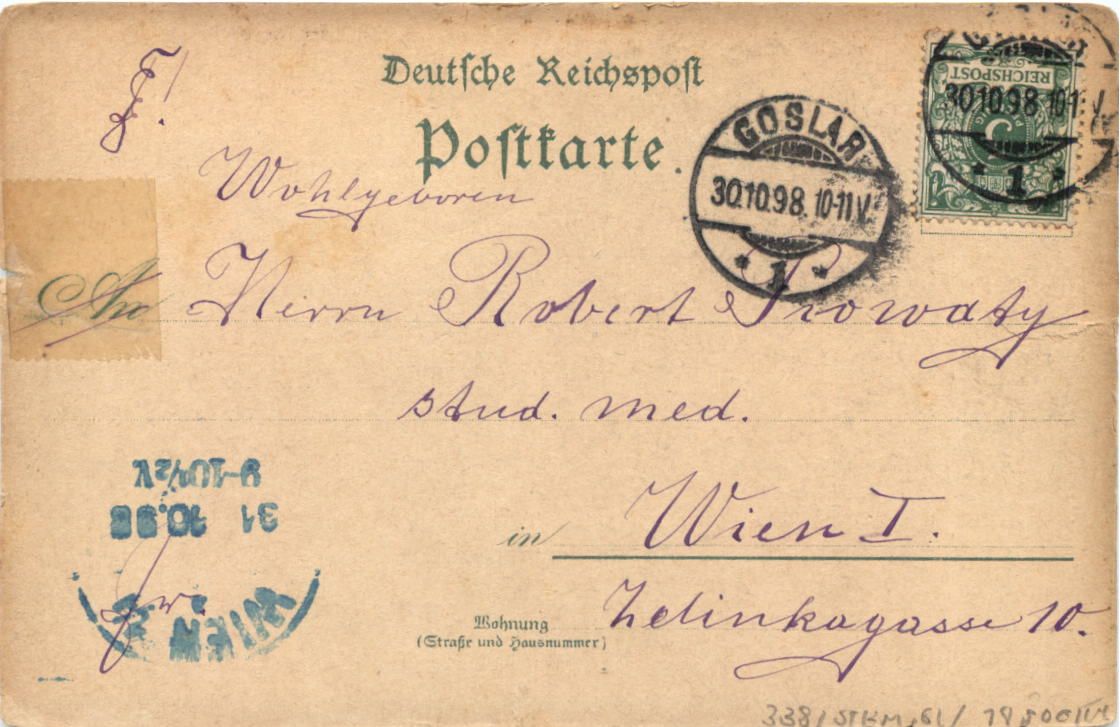 Deutsche Reichspost
Postkarte.
Wohlgeboren
An Herrn Robert
stud. med.
in Wien I.
Wohnung
(Straße und Hausnummer)
Zelinkagasse 10.
GOSLAR
30.10.98. 10-11 V.
* 1 *
REICHSPOST
5
30.10.98. 10-11 V.
* 1 *
WIEN
31 10.98
9-10½V